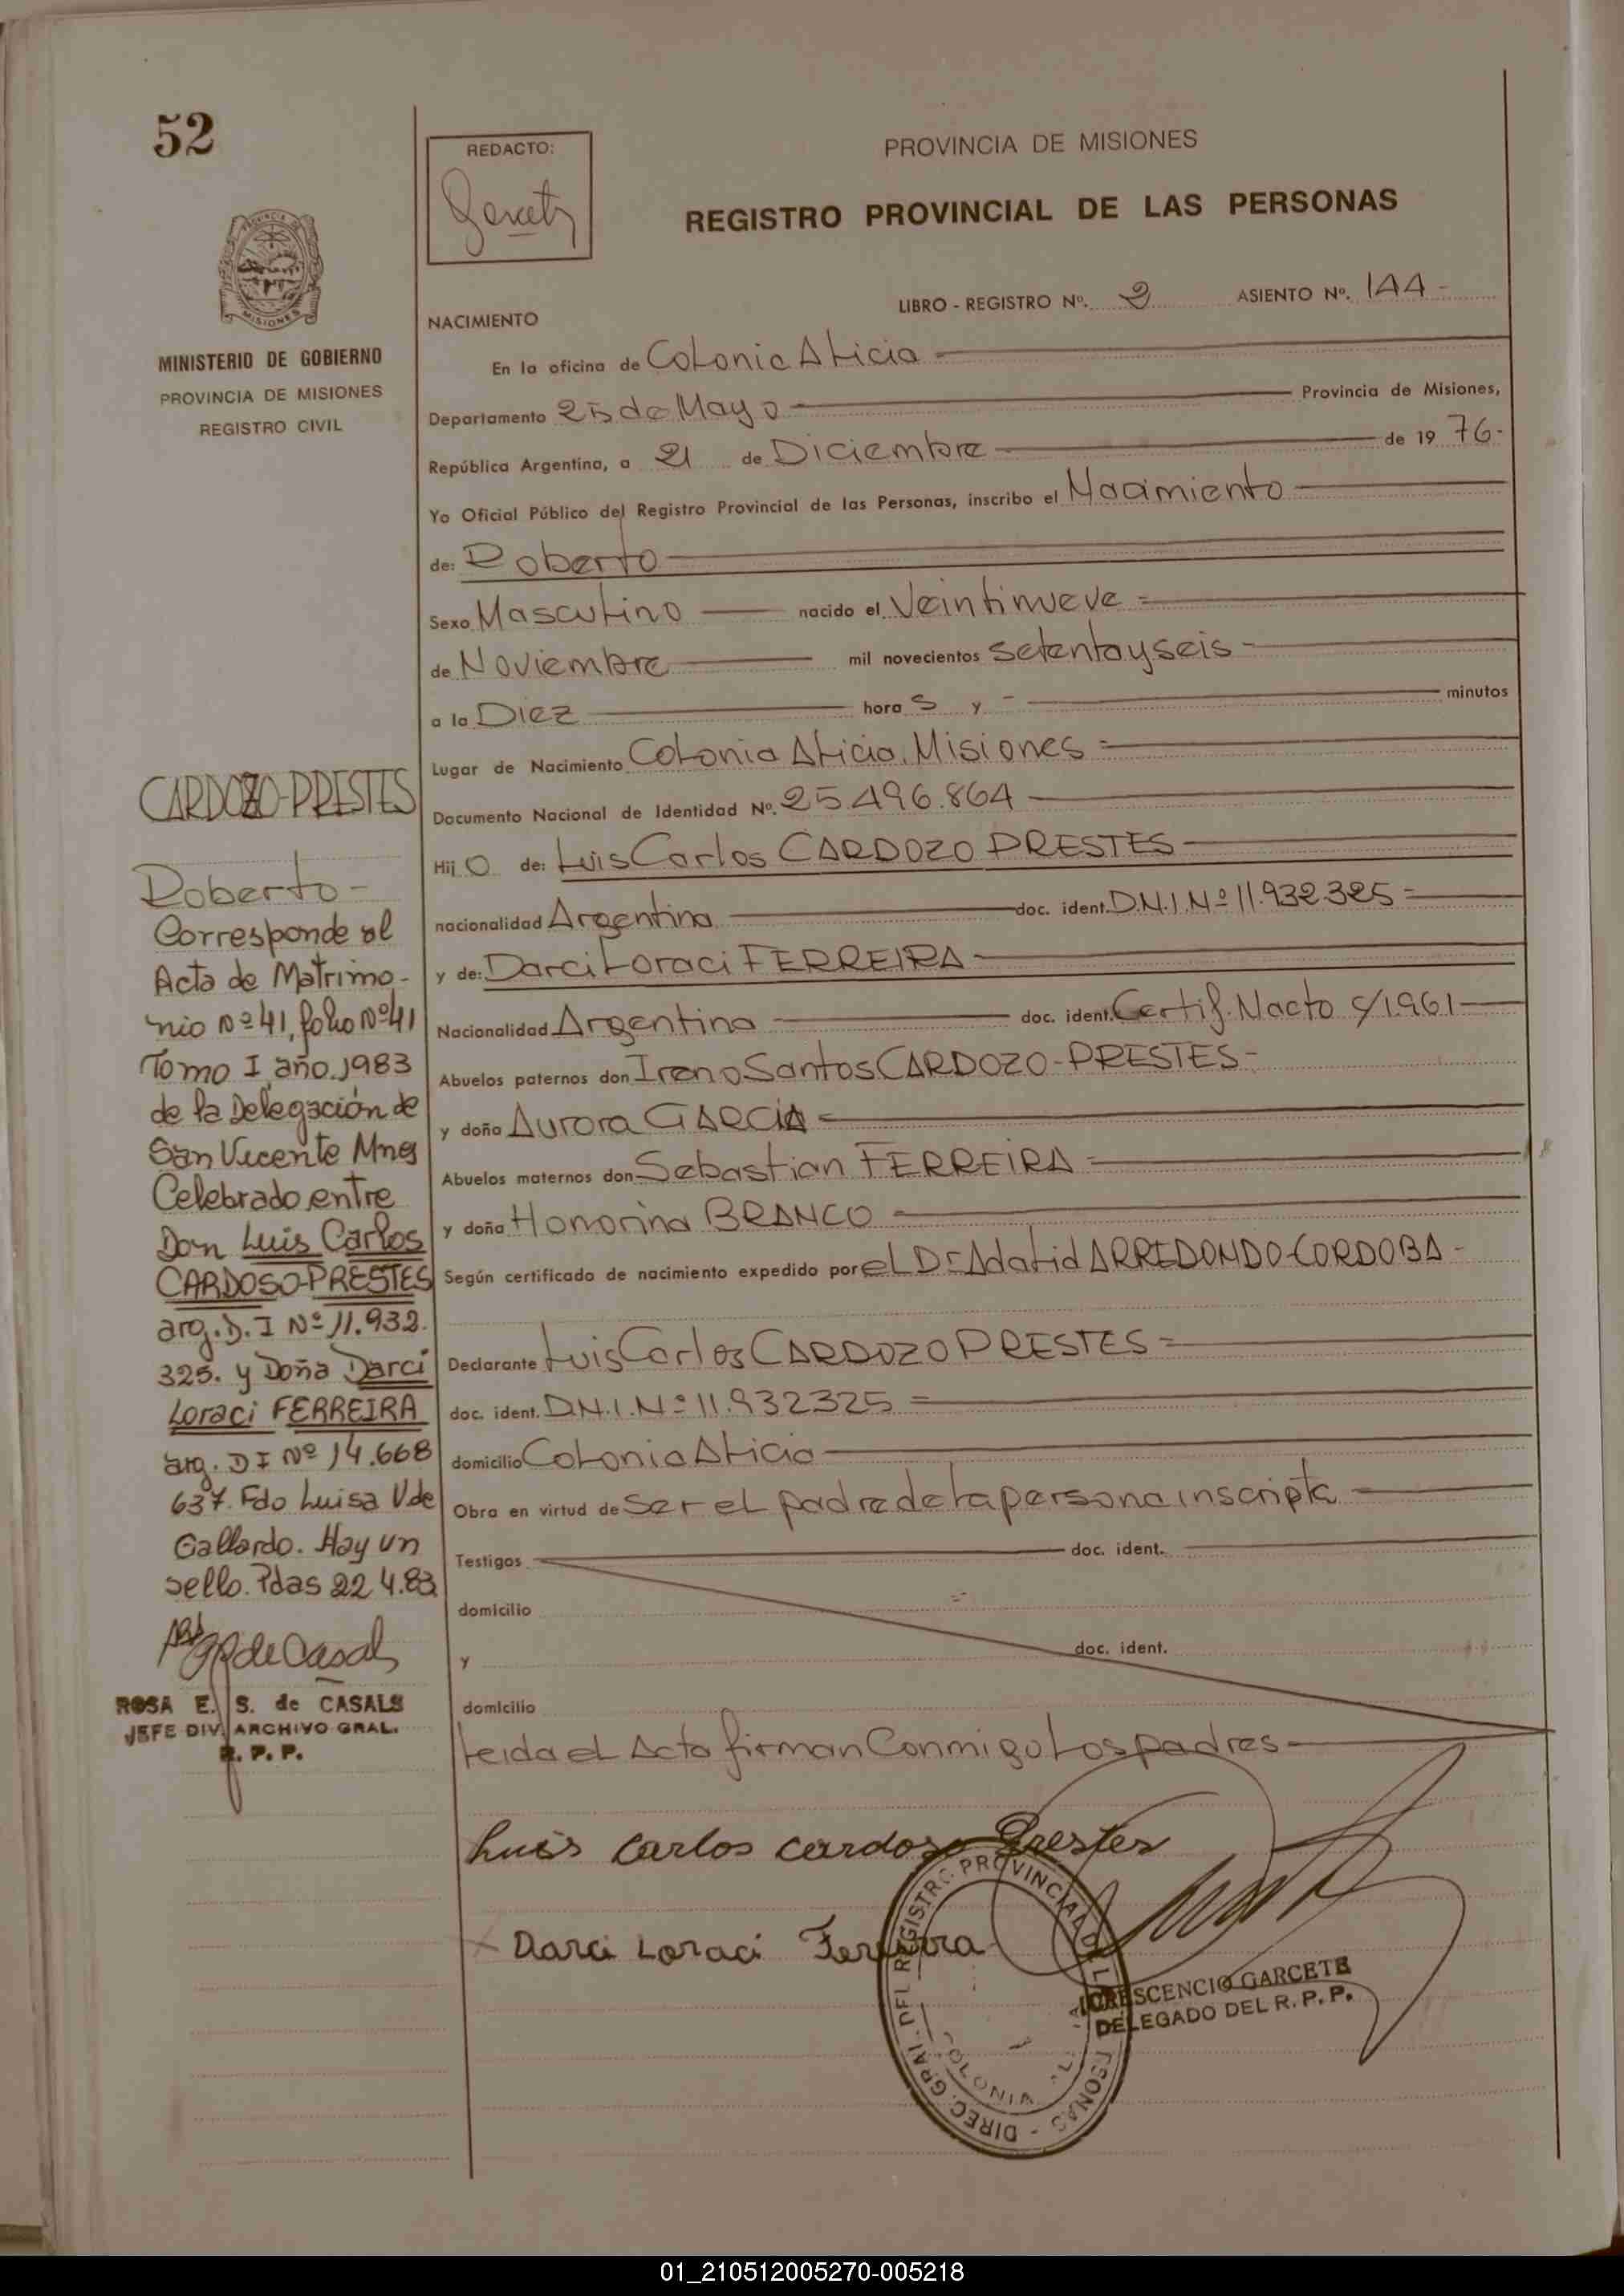 52
REDACTO:
PROVINCIA DE MISIONES
REGISTRO PROVINCIAL DE LAS PERSONAS
MISIONES
MINISTERIO DE GOBIERNO
PROVINCIA DE MISIONES
REGISTRO CIVIL
LIBRO - REGISTRO Nº. 2 ASIENTO Nº. 144-
NACIMIENTO
En la oficina de Colonia Alicia
Departamento 25 de Mayo Provincia de Misiones,
República Argentina, a 21 de Diciembre de 19 76-
Yo Oficial Público del Registro Provincial de las Personas, inscribo el Nacimiento
de: Roberto
Sexo Masculino nacido el Veintinueve
de Noviembre mil novecientos setentayseis
a la Diez hora s y - minutos
Lugar de Nacimiento Colonia Alicia, Misiones
Documento Nacional de Identidad Nº. 25.496.864
Hij o de: Luis Carlos CARDOZO PRESTES
nacionalidad Argentina doc. ident. D.N.I.Nº 11.932.325
y de: Darci Loraci FERREIRA
Nacionalidad Argentina doc. ident. Certif. Nacto c/1.961
Abuelos paternos don Ireno Santos CARDOZO-PRESTES-
y doña Aurora GARCIA
Abuelos maternos don Sebastian FERREIRA
y doña Honorina BRANCO
Según certificado de nacimiento expedido por el Dr Adalid ARREDONDO-CORDOBA-
Declarante Luis Carlos CARDOZO PRESTES
doc. ident. D.N.I.Nº 11.932325
domicilio Colonia Alicia
Obra en virtud de ser el padre de la persona inscripta
Testigos doc. ident.
domicilio
y doc. ident.
domicilio
Leida el Acta firman Conmigo Los padres
Luis Carlos Cardoso Prestes
Darci Loraci Ferreira
CRESCENCIO GARCETE
DELEGADO DEL R. P. P.
DIREC. GRAL. DEL REGISTRO PROVINCIAL DE LAS PERSONAS
COLONIA
CARDOZO-PRESTES
Roberto-
Corresponde al
Acta de Matrimo-
nio Nº 41, folio Nº 41
Tomo I, año 1983
de la Delegación de
San Vicente Mnes
Celebrado entre
Don Luis Carlos
CARDOSO-PRESTES
arg. D. I Nº 11.932.
325. y Doña Darci
Loraci FERREIRA
arg. D I Nº 14.668
637. Fdo Luisa V. de
Gallardo. Hay un
sello. Pdas 22 4.83
ROSA E. S. de CASALS
JEFE DIV. ARCHIVO GRAL.
R. P. P.
01_210512005270-005218